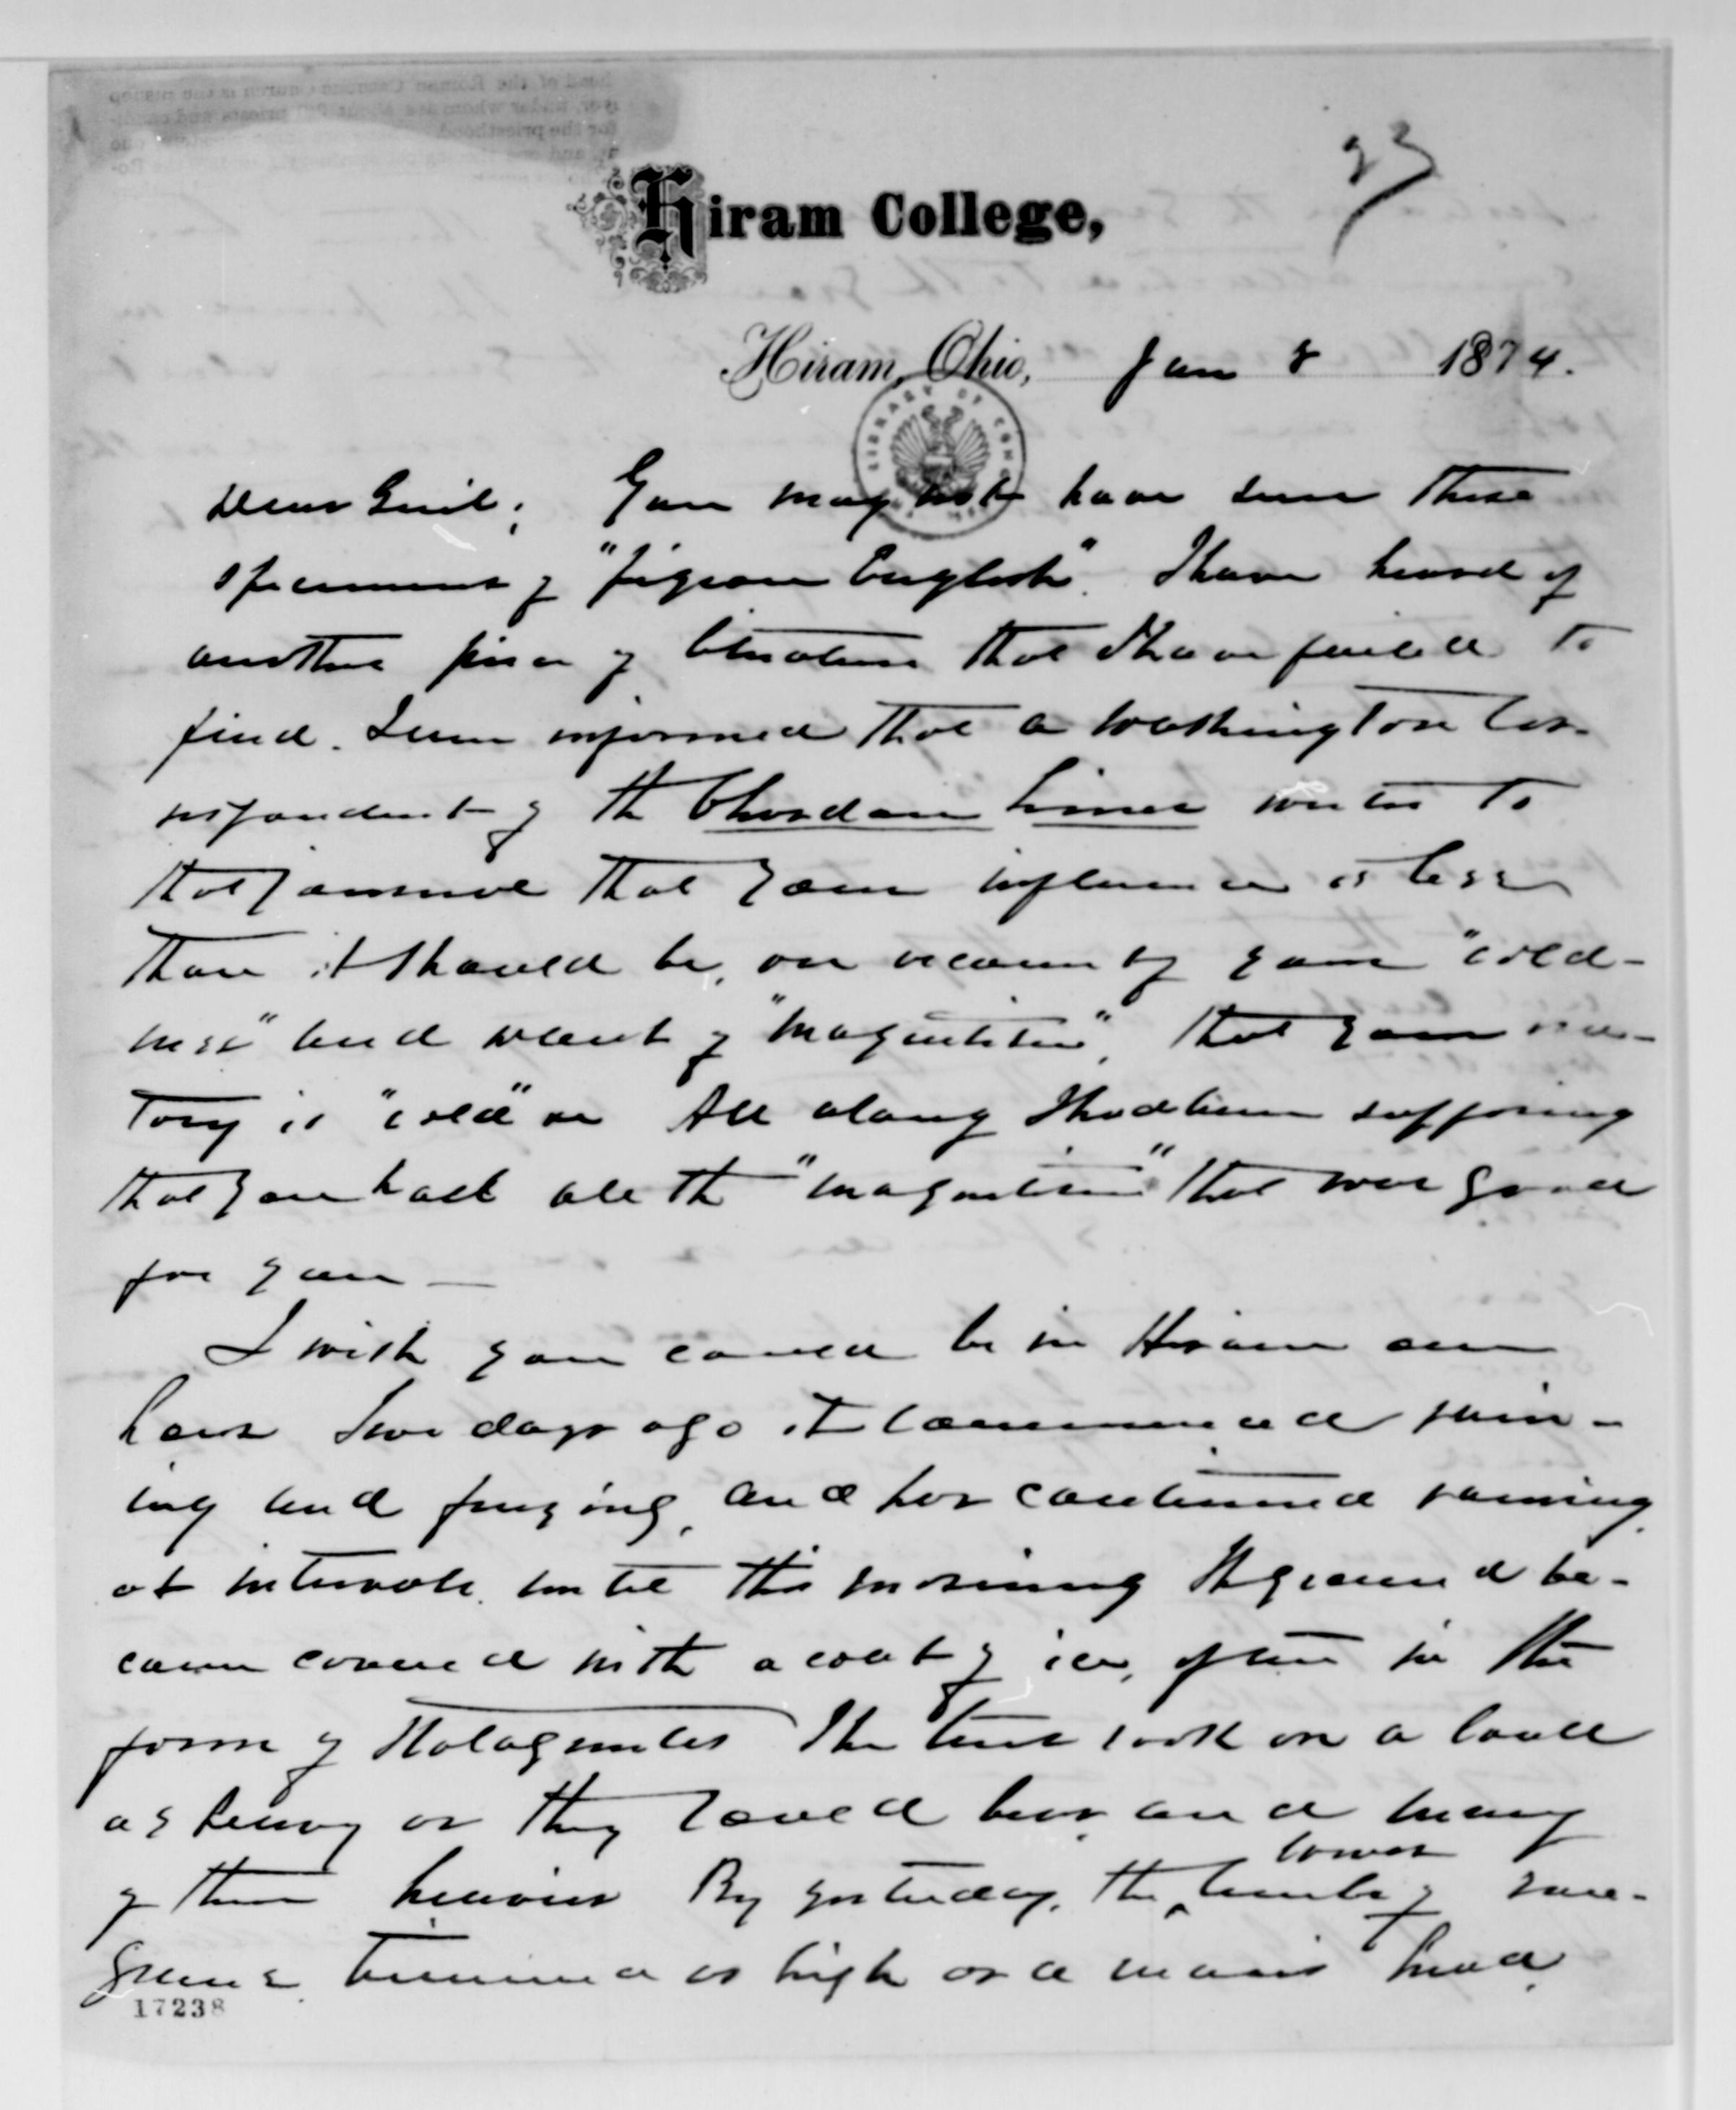 23
Hiram College,
Hiram, Ohio, Jan 8 1874.
LIBRARY OF CONG
Dear Genl; You may not have seen these
specimens of "pigeon English". I have heard of
another piece of literature that I have failed to
find. I am informed that a Washington Cor-
respondent of the Chardon Times writes to
that journal that your influence is less
than it should be, on account of your "cold-
ness" and want of "magnetism", that your ora-
tory is "cold" &c All along I had been supposing
that you had all the "magnetism" that was good
for you —
I wish you could be in Hiram an
hour Two days ago it commenced rain-
ing and freezing, and has continued raining
at intervals until this morning The ground be-
came covered with a coat of ice, often in the
form of stalagmites The trees took on a load
as heavy as they could bear and many
of them heavier By yesterday, the lower limbs of ever-
greens trimmed as high as a mans head,
17238